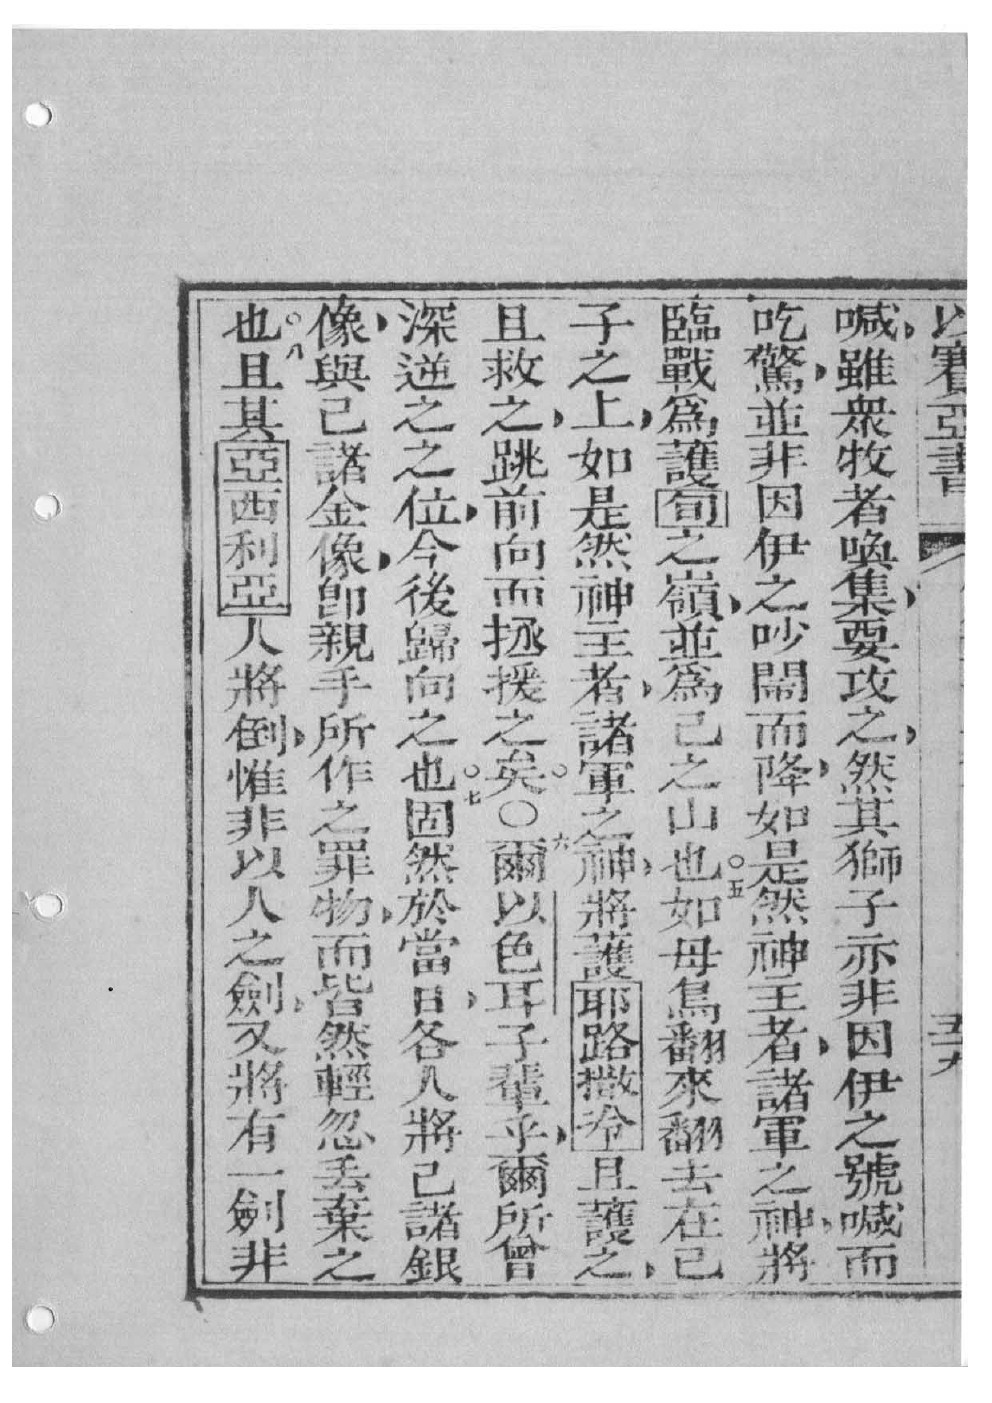 以賽亞書 五十九
喊雖衆牧者喚集要攻之然其獅子亦非因伊之號喊而
吃驚並非因伊之吵鬧而降如是然神王者諸軍之神將
臨戰爲護旬之嶺並爲己之山也○五如母鳥翻來翻去在己
子之上如是然神王者諸軍之神將護耶路撒冷且護之
且救之跳前向而拯援之矣○○六爾以色耳子輩乎爾所曾
深逆之之位今後歸向之也○七固然於當日各人將己諸銀
像與己諸金像卽親手所作之罪物而皆然輕忽丟棄之
也○八且其亞西利亞人將倒惟非以人之劍又將有一劍非